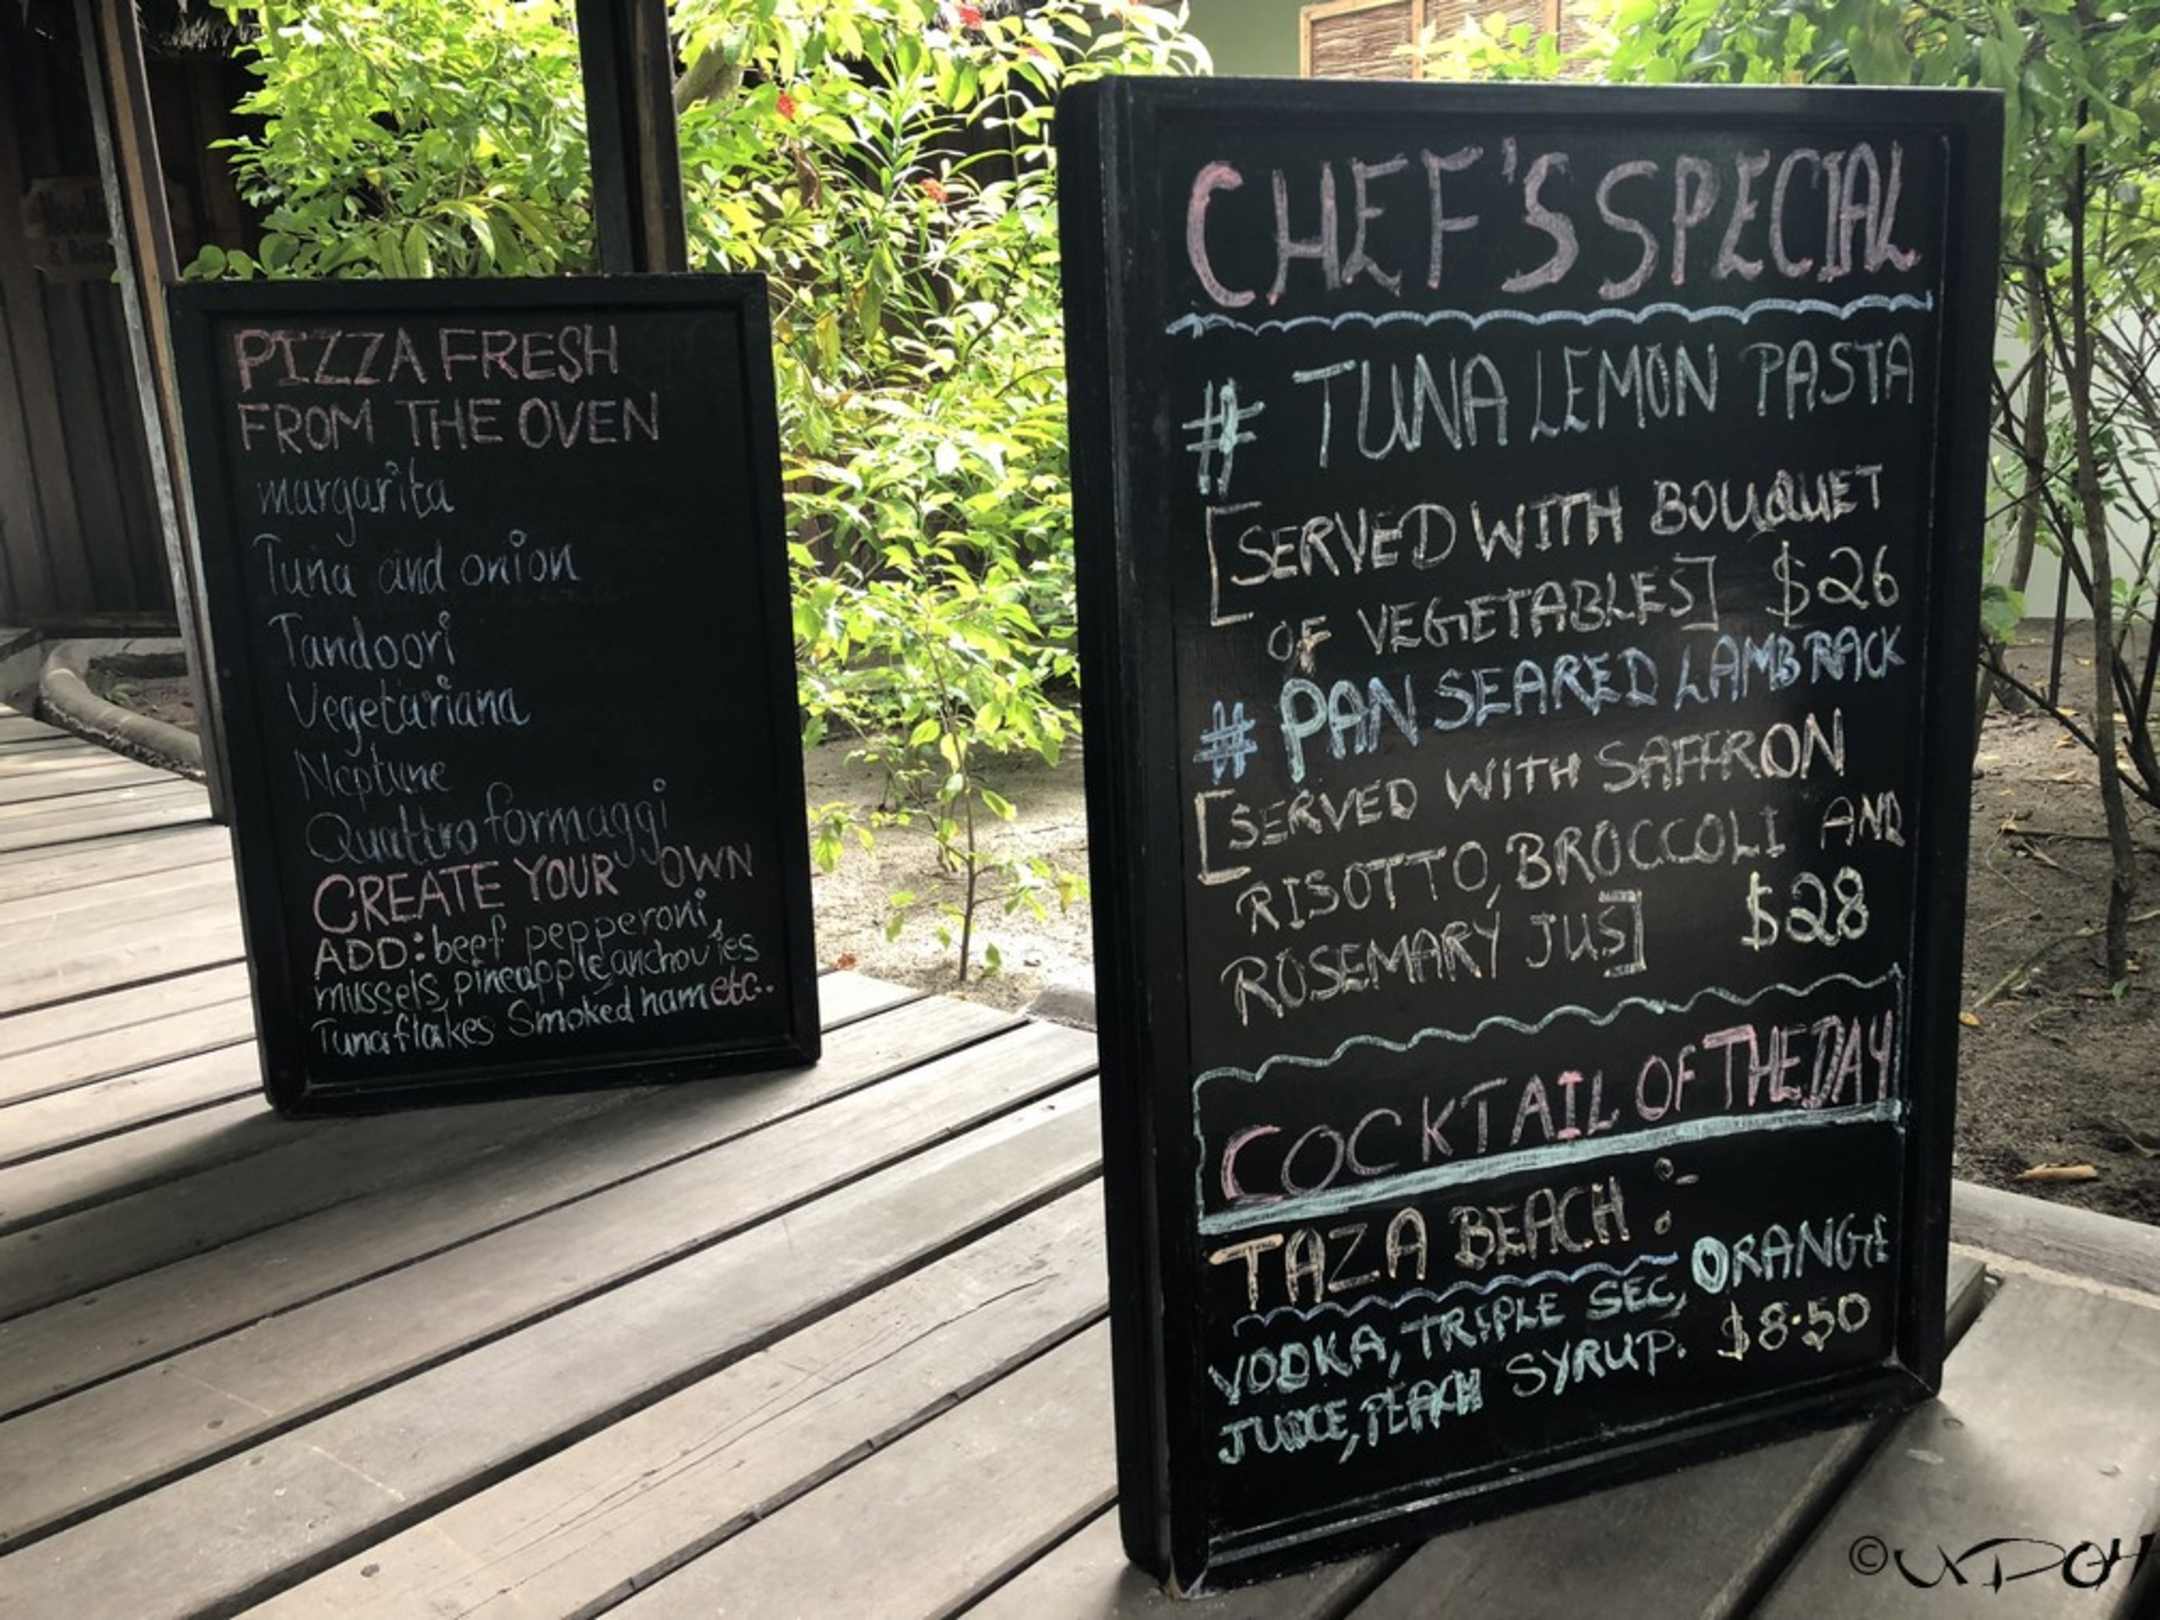 PIZZA FRESH
FROM THE OVEN
margarita
Tuna and onion
Tandoori
Vegetariana
Neptune
Quattro formaggi
CREATE YOUR OWN
ADD: beef pepperoni,
mussels, pineapple, anchovies
Tuna flakes Smoked ham etc..
CHEF'S SPECIAL
# TUNA LEMON PASTA
[SERVED WITH BOUQUET
OF VEGETABLES] $26
# PAN SEARED LAMB RACK
[SERVED WITH SAFFRON
RISOTTO, BROCCOLI AND
ROSEMARY JUS] $28
COCKTAIL OF THE DAY
TAZA BEACH :-
VODKA, TRIPLE SEC, ORANGE
JUICE, PEACH SYRUP. $8.50